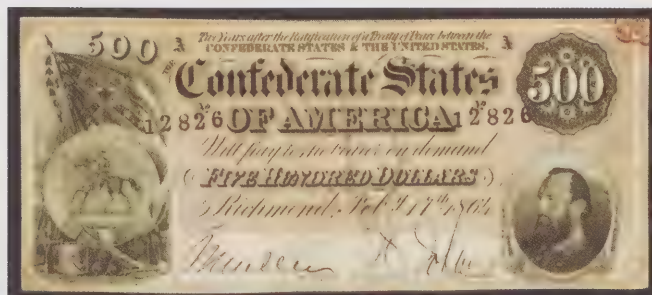 500 A Two Years after the Ratification of a Treaty of Peace between the A
CONFEDERATE STATES & THE UNITED STATES,
THE
Confederate States 500
No 12826 OF AMERICA No 12826
Will pay to the bearer on demand
FIVE HUNDRED DOLLARS
Richmond, Feby 17th 1864